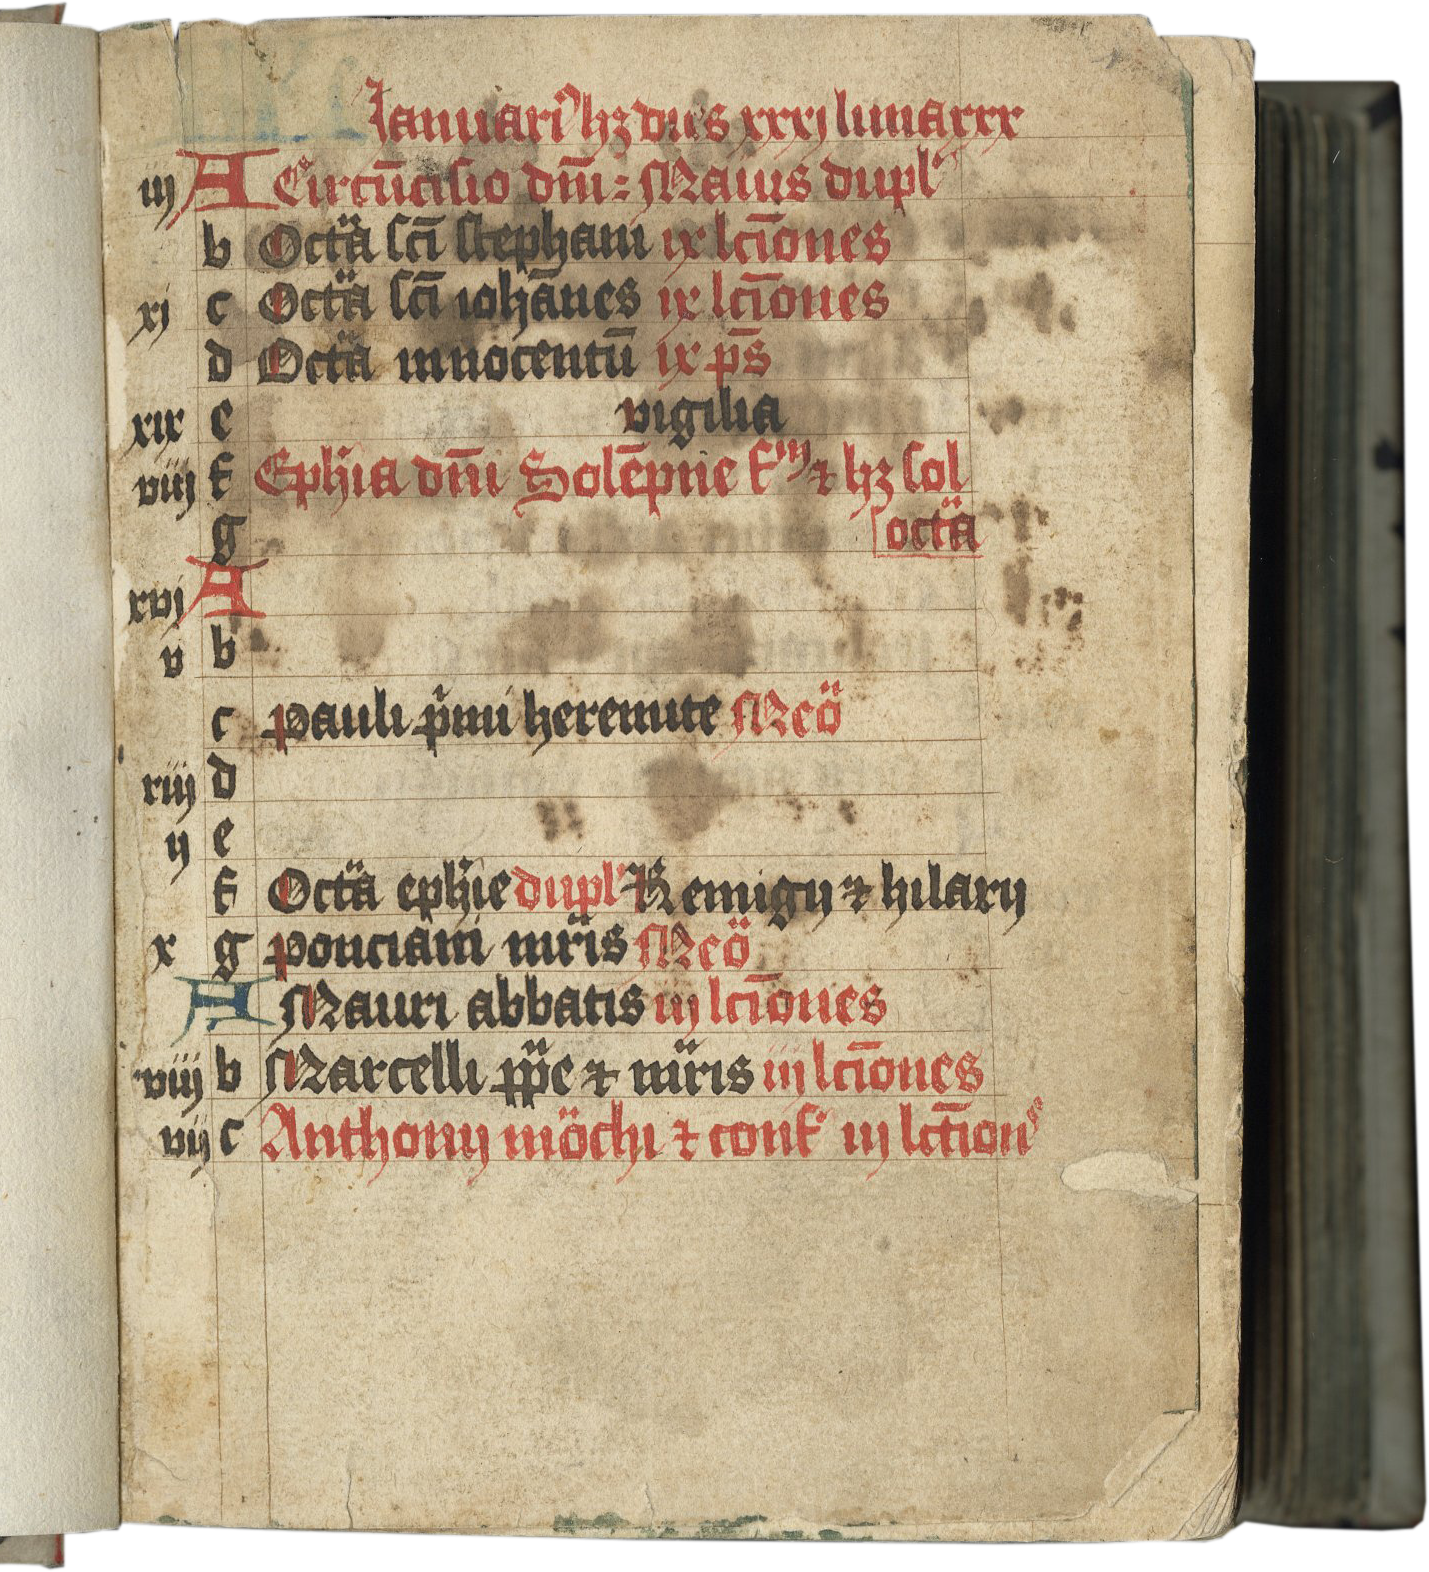 KL
Januari⁹ hꝫ dies xxxj luna xxx
iij A Circu̅cisio dn̅i : Maius dupl'
b Octa̎ sci̅ stephani ix lci̅ones
xj c Octa̎ sci̅ ioha̅nes ix lci̅ones
d Octa̎ innocentu̅ ix ps̅
xix e vigilia
viij f Ephi̅a dn̅i Sole̅pne f iij ⁊ hꝫ sol
g octa̎
xvj A
v b
c pauli pi̅mi heremite Meo̎
xiij d
ij e
f Octa̎ ephi̅e dupl' Remigij ⁊ hilarij
x g ponciani mr̎is Meo̎
A Mauri abbatis iij lci̅ones
xviij b Marcelli pp̎e ⁊ mr̎is iij lci̅ones
vij c Anthonij mo̎chi ⁊ conf' iij lct̅ion̉